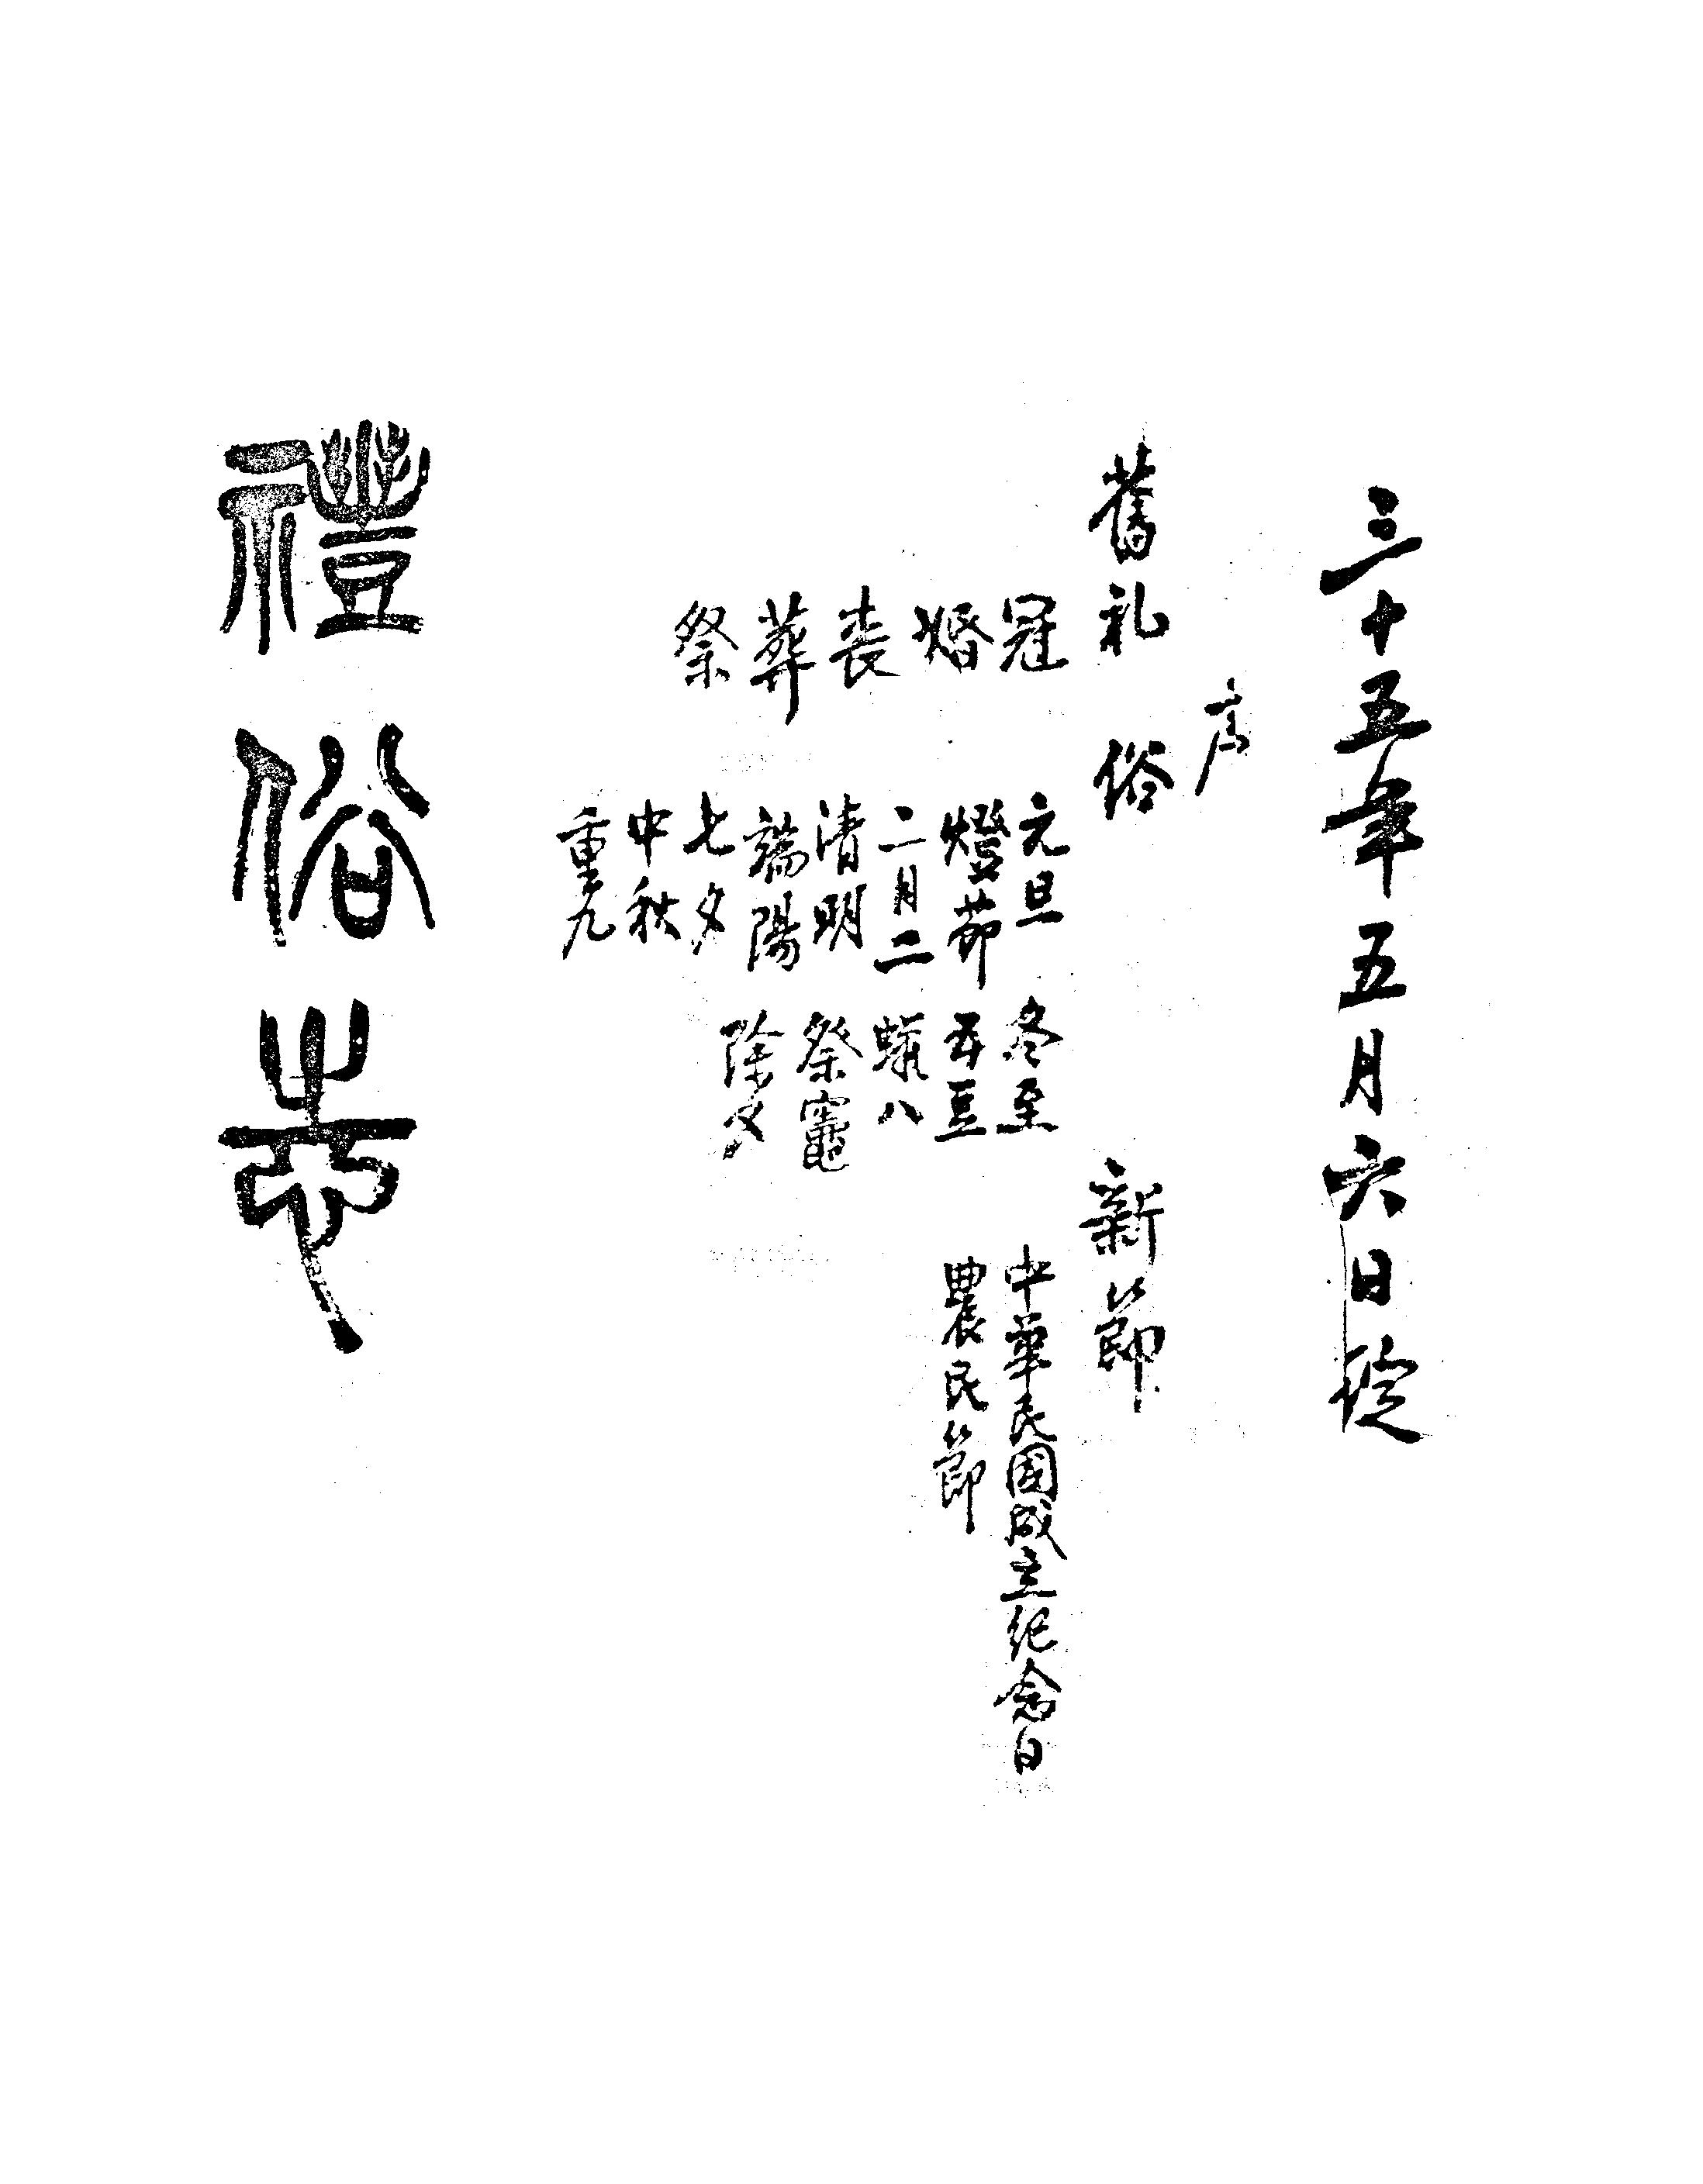 三十五年五月六日
序
舊礼
冠
婚
喪
葬
祭
俗
元旦
燈節
二月二
清明
端陽
七夕
中秋
重九
冬至
五豆
蠟八
祭竈
除夕
新節
中華民國成立紀念日
農民節
禮俗志